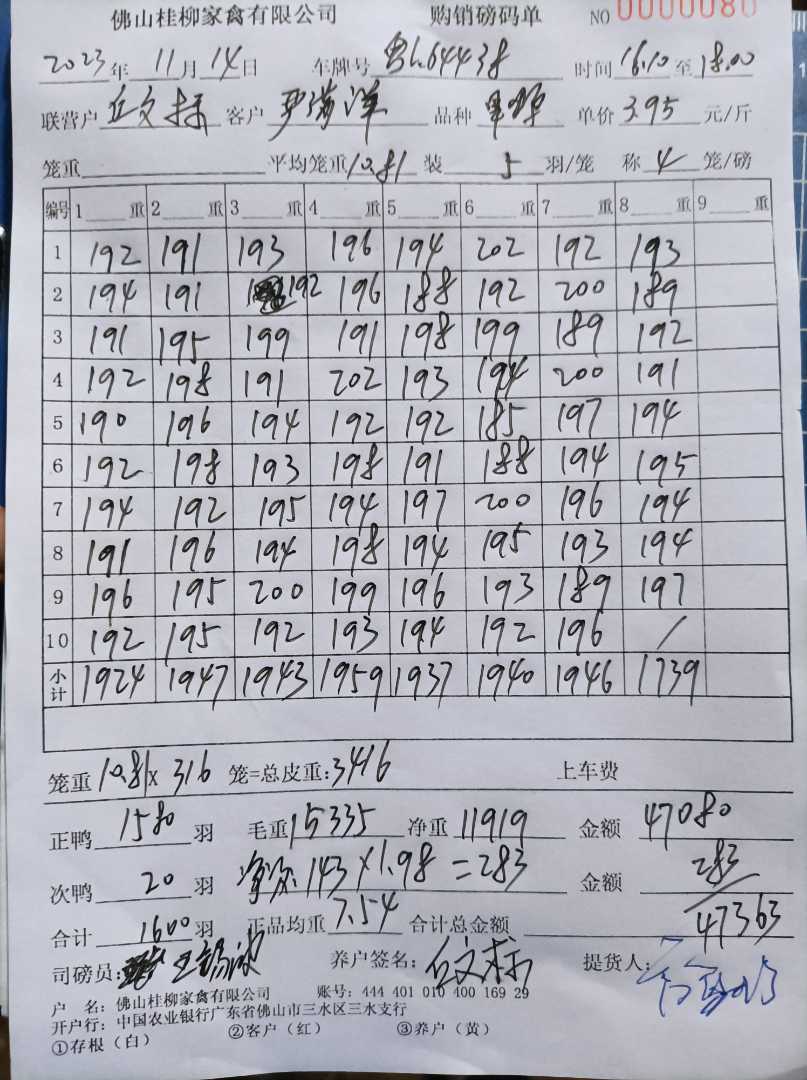 佛山桂柳家禽有限公司 购销磅码单 NO 0000080
2023年 11月 14日 车牌号 粤L64438 时间 16.10 至 18.00
联营户 丘文标 客户 品种 单价 3.95 元/斤
笼重 平均笼重 10.81 装 5 羽/笼 称 4 笼/磅
编号 1 重 2 重 3 重 4 重 5 重 6 重 7 重 8 重 9 重
1 192 191 193 196 194 202 192 193
2 194 191 192 196 188 192 200 189
3 191 195 199 191 198 199 189 192
4 192 198 191 202 193 194 200 191
5 190 196 194 192 192 185 197 194
6 192 198 193 198 191 188 194 195
7 194 192 195 194 197 200 196 194
8 191 196 194 198 194 195 193 194
9 196 195 200 199 196 193 189 197
10 192 195 192 193 194 192 196 /
小计 1924 1947 1943 1959 1937 1940 1946 1739
笼重 10.81 x 316 笼=总皮重:3416 上车费
正鸭 1580 羽 毛重 15335 净重 11919 金额 47080
次鸭 20 羽 143 x 1.98 = 283 金额 283
合计 1600 羽 正品均重 7.54 合计总金额 47363
司磅员: 养户签名: 丘文标 提货人:
户 名: 佛山桂柳家禽有限公司 账号: 444 401 010 400 169 29
开户行: 中国农业银行广东省佛山市三水区三水支行
①存根(白) ②客户(红) ③养户(黄)